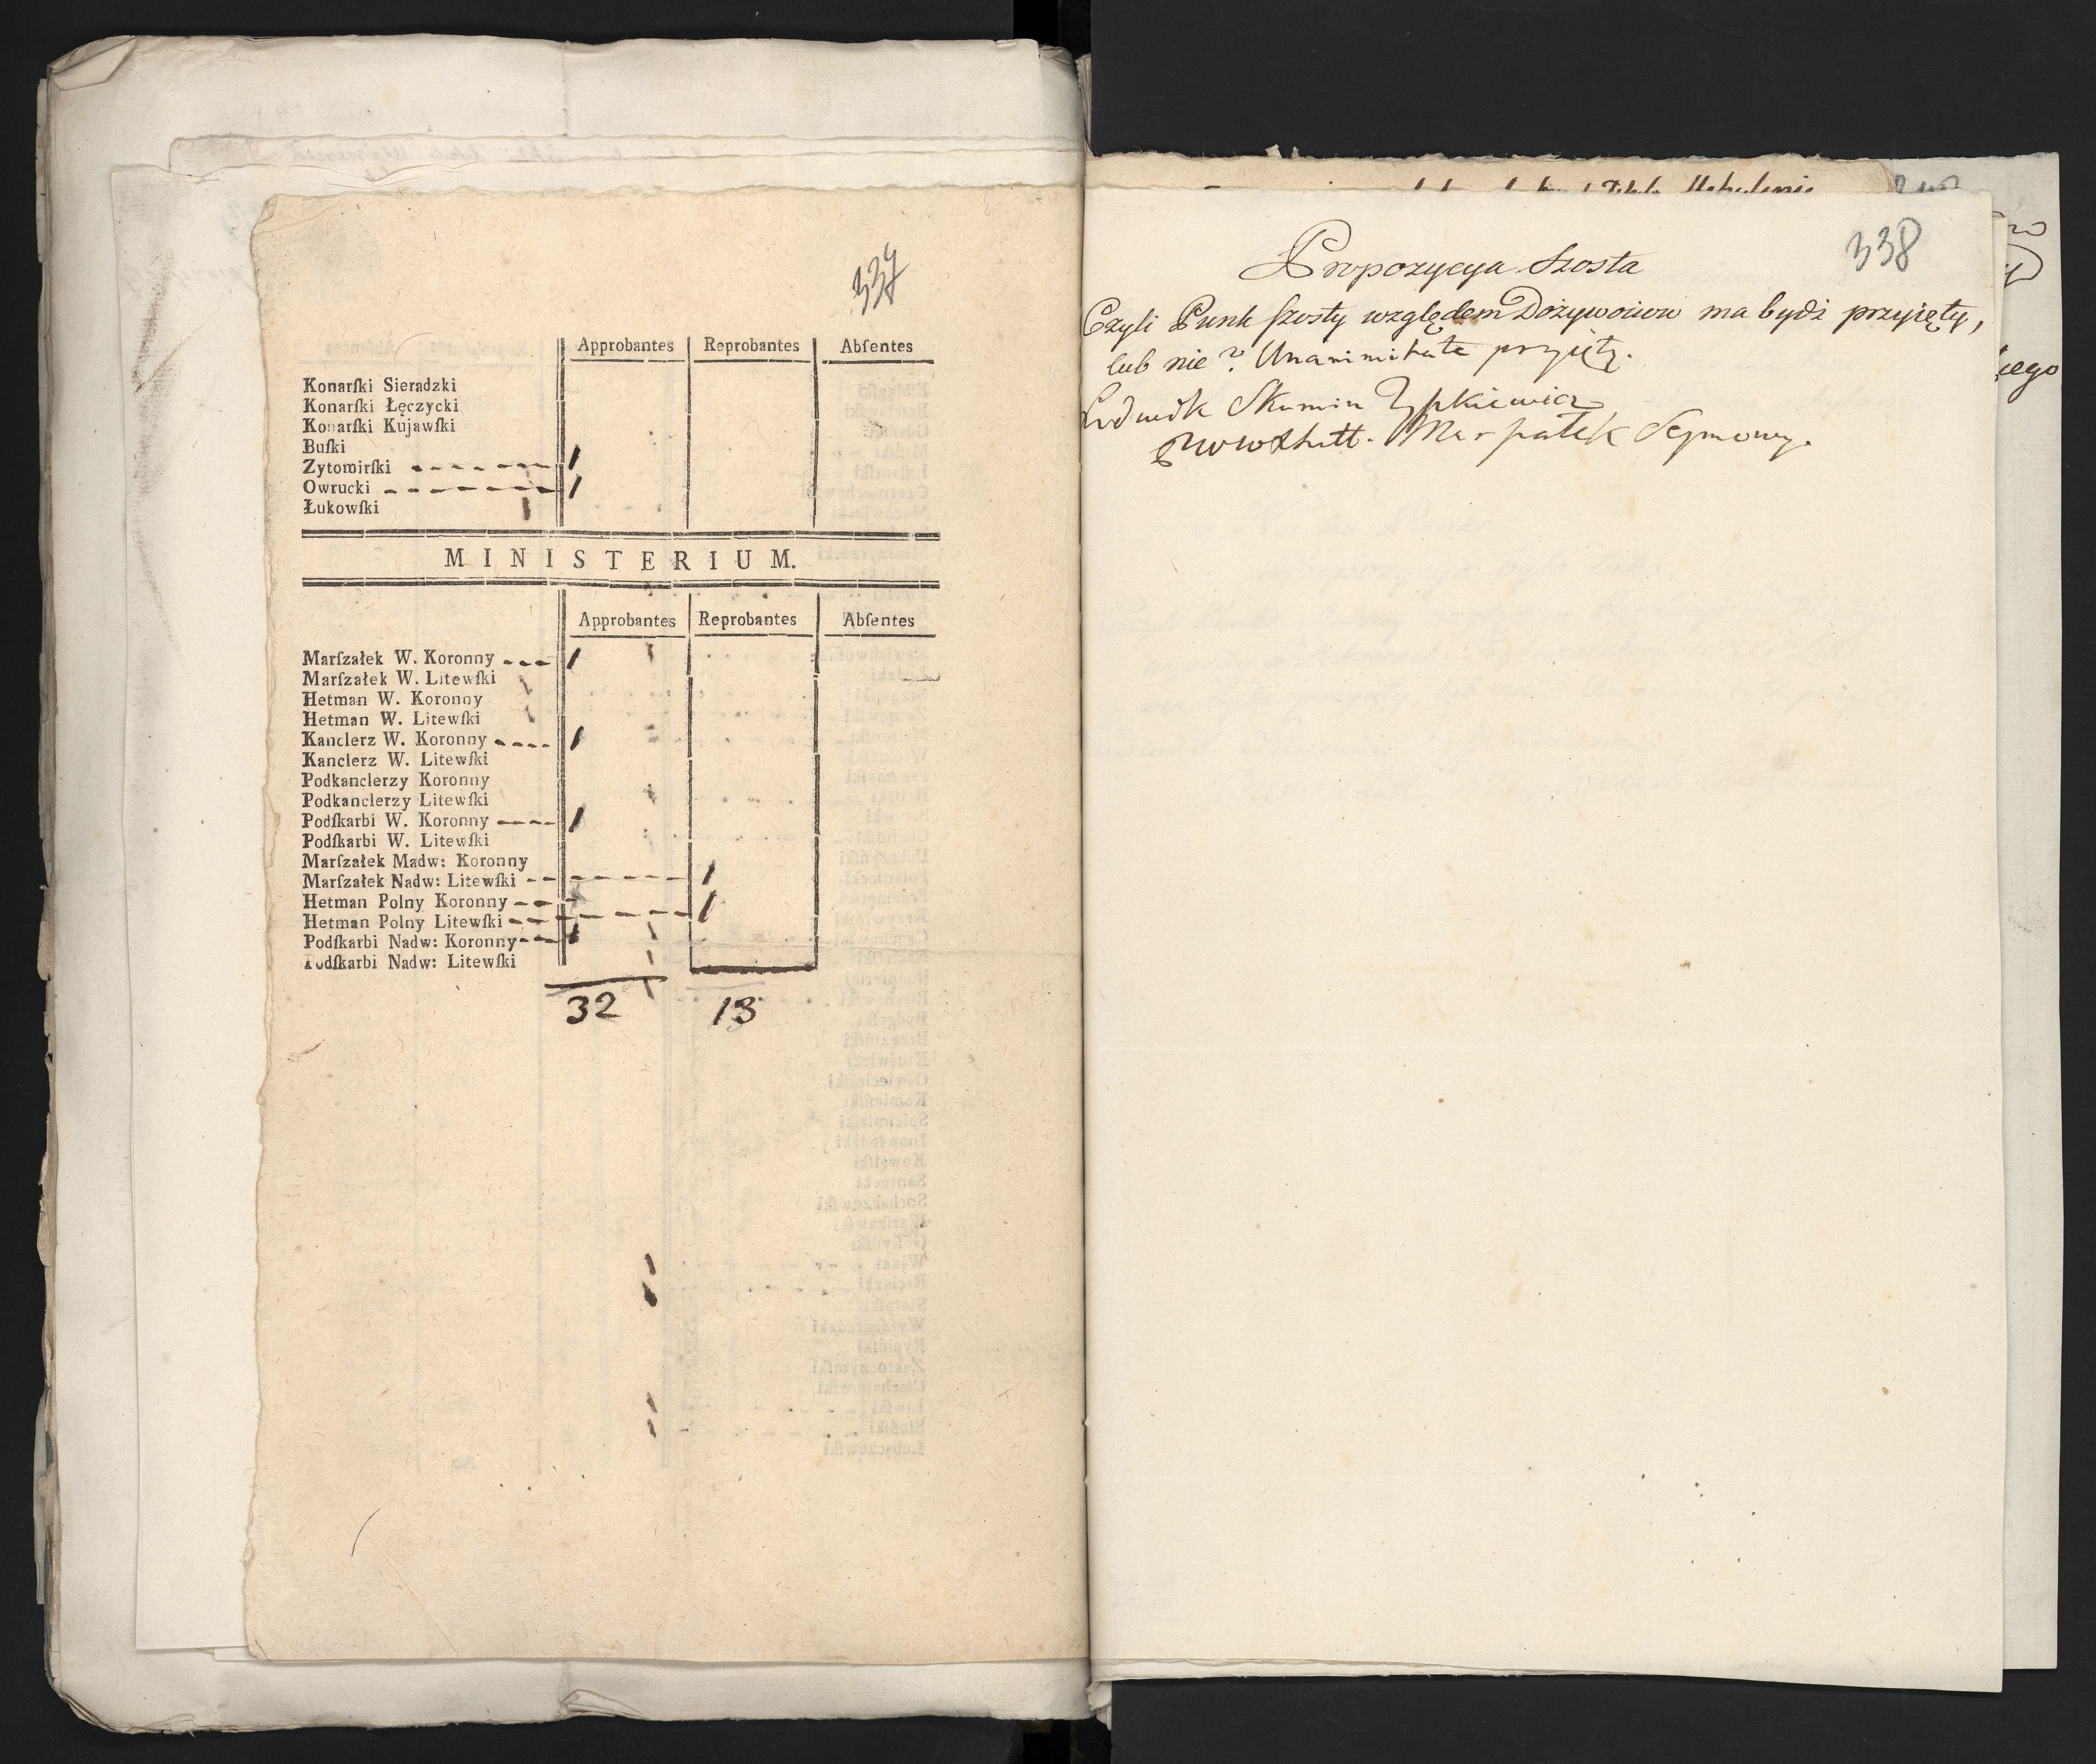 337
Approbantes Reprobantes Abſentes
Konarſki Sieradzki
Konarſki Łęczycki
Konarſki Kujawſki
Buſki
Zytomirſki
Owrucki
Łukowſki
MINISTERIUM.
Approbantes Reprobantes Abſentes
Marſzałek W. Koronny
Marſzałek W. Litewſki
Hetman W. Koronny
Hetman W. Litewſki
Kanclerz W. Koronny
Kanclerz W. Litewſki
Podkanclerzy Koronny
Podkanclerzy Litewſki
Podſkarbi W. Koronny
Podſkarbi W. Litewſki
Marſzałek Madw: Koronny
Marſzałek Nadw: Litewſki
Hetman Polny Koronny
Hetman Polny Litewſki
Podſkarbi Nadw: Koronny
Podſkarbi Nadw: Litewſki
32 13
338
Propozycya Szosta
Czyli Punk ſzosty względem Dożywociow ma bydź przyięty,
lub nie? Unanimitate przyięty.
Ludwik Skumin Tyſzkiewicz
Marſzałek Seymowy.
iego